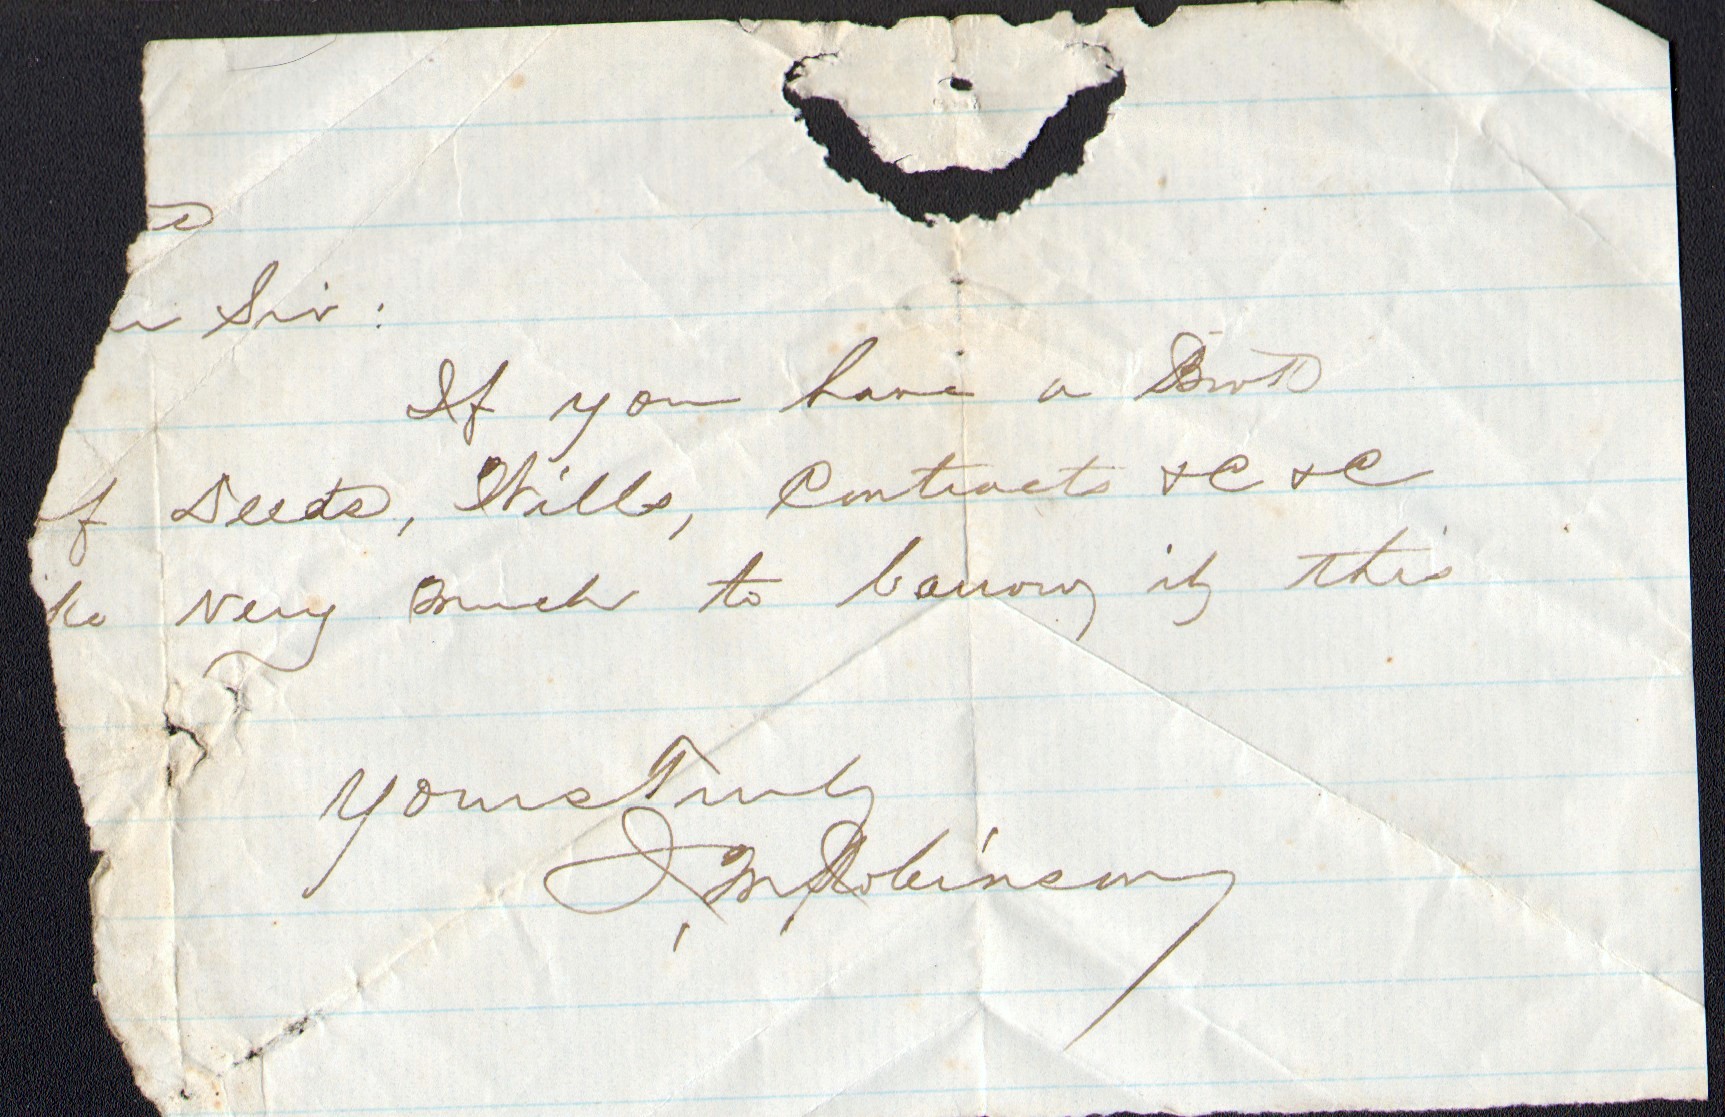 Sir :
If you have a Book
of Deeds, Wills, Contracts &C &C
very much to borrow it this
Yours Truly
J. M. Robinson